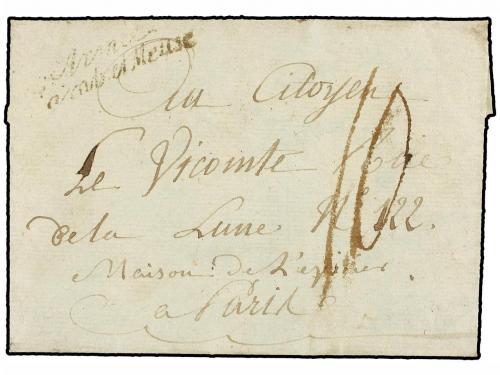 Armée
Sambre et Meuse
Au Citoyen
Le Vicomte Rue
de la Lune N° 122.
Maison de L'epicier
a Paris
10